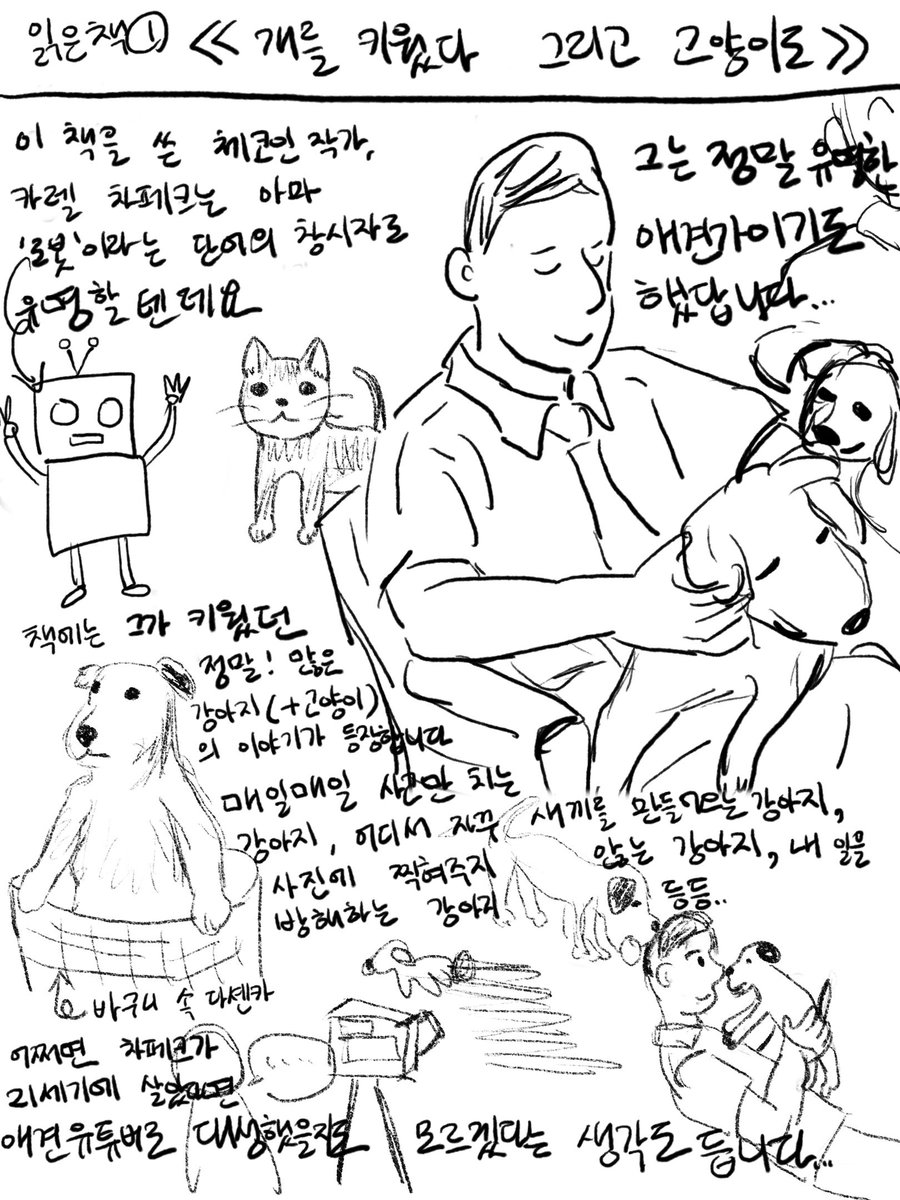 읽은책 ① 《개를 키웠다 그리고 고양이도》
이 책을 쓴 체코인 작가,
카렐 차페크는 아마
'로봇'이라는 단어의 창시자로
유명할 텐데요
그는 정말 유명한
애견가이기도
했답니다...
책에는 그가 키웠던
정말! 많은
강아지(+고양이)
의 이야기가 등장합니다
매일매일 사진만 치는
강아지, 어디서 자꾸 새끼를 만들어오는 강아지,
사진에 찍혀주지 않는 강아지, 내 일을
방해하는 강아지 등등..
바구니 속 다셴카
어쩌면 차페크가
21세기에 살았다면
애견유튜버로 대성했을지도 모르겠다는 생각도 듭니다...